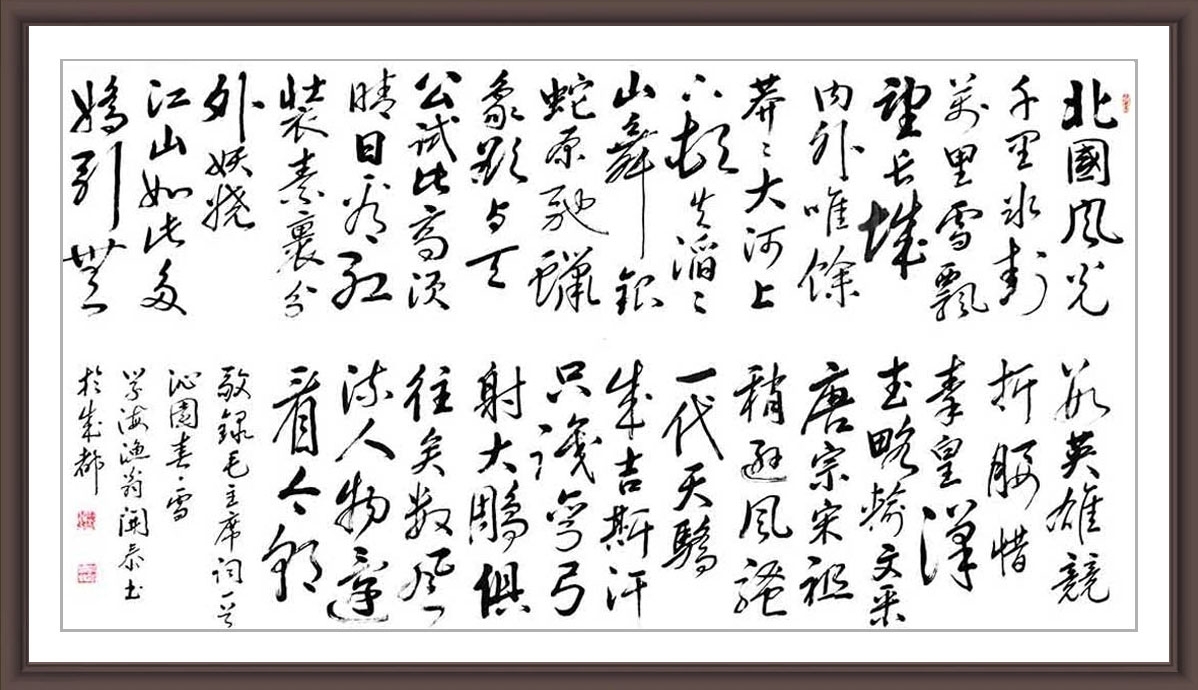 北國風光
千里冰封
萬里雪飄
望長城
内外唯餘
莽々大河上
下頓失滔々
山舞銀
蛇原馳蠟
象欲与天
公試比高須
晴日看紅
裝素裹分
外妖嬈
江山如此多
嬌引無
數英雄競
折腰惜
秦皇漢
武略輸文采
唐宗宋祖
稍遜風騷
一代天驕
成吉斯汗
只識彎弓
射大鵰俱
往矣數風
流人物還
看今朝
敬録毛主席詞一首
沁園春·雪
学海漁翁開泰书
於成都